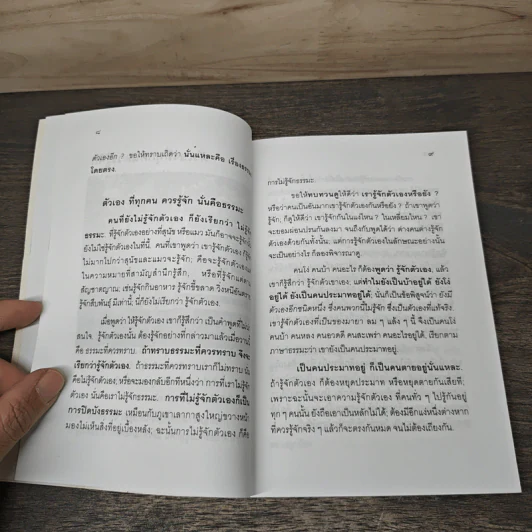 ๘
ตัวเองอีก ? ขอให้ทราบเถิดว่า นั่นแหละคือ เรื่องธรรมะ
โดยตรง.
ตัวเอง ที่ทุกคน ควรรู้จัก นั่นคือธรรมะ
คนที่ยังไม่รู้จักตัวเอง ก็ยังเรียกว่า ไม่รู้จัก
ธรรมะ. ที่รู้จักตัวเองอย่างที่สุนัข หรือแมว มันก็อาจจะรู้จัก
ยังไม่ใช่รู้จักตัวเองในที่นี้. คนที่เขาพูดว่า เขารู้จักตัวเองก็
ไม่มากไปกว่าสุนัขและแมวจะรู้จัก; คือจะรู้จักตัวเอง
ในความหมายที่สามัญสำนึกรู้สึก, หรือที่รู้จักตาม
สัญชาตญาณ; เช่นรู้จักกินอาหาร รู้จักขี้ขลาด วิ่งหนีอันตราย
รู้จักสืบพันธุ์ มีเท่านี้; นี่ก็ยังไม่เรียกว่า รู้จักตัวเอง.
เมื่อพูดว่า ให้รู้จักตัวเอง เขาก็รู้สึกว่า เป็นคำพูดที่ไม่
สนใจ. ก็รู้จักตัวเองนั้น ต้องรู้จักอย่างที่กล่าวมาแล้วเมื่อวาน
คือ ธรรมะที่ควรทราบ. ถ้าทราบธรรมะที่ควรทราบ จึงจะ
เรียกว่ารู้จักตัวเอง. ถ้าธรรมะที่ควรทราบเราก็ไม่ทราบ นั่น
คือไม่รู้จักตัวเอง; หรือจะมองกลับอีกทีหนึ่งว่า การที่เราไม่รู้จัก
ตัวเอง นั่นคือเราไม่รู้จักธรรมะ. การที่ไม่รู้จักตัวเองก็เป็น
การปิดบังธรรมะ เหมือนกับภูเขาเลากาสูงใหญ่ขวางหน้า
มองไม่เห็นสิ่งที่อยู่เบื้องหลัง; ฉะนั้นการไม่รู้จักตัวเอง ก็คือ
๙
การไม่รู้จักธรรมะ.
ขอให้ทบทวนดูให้ดีว่า เรารู้จักตัวเองหรือยัง ?
หรือว่าคนเป็นอันมากเขารู้จักตัวเองกันหรือยัง ? ถ้าเขาพูดว่า
รู้จัก, ก็ดูให้ดีว่า เขารู้จักกันในแง่ไหน ? ในเหลี่ยมไหน ? เขา
จะยอมผ่อนปรนกันลงมา จนถึงกับพูดได้ว่า ต่างคนต่างรู้จัก
ตัวเองด้วยกันทั้งนั้น; แต่การรู้จักตัวเองในลักษณะอย่างนั้น
จะเป็นอย่างไร ก็ลองพิจารณาดู.
คนโง่ คนบ้า คนอะไร ก็ต้องพูดว่า รู้จักตัวเอง, แล้ว
เขาก็รู้สึกว่า เขารู้จักตัวเองได้, แต่ทำไมยังเป็นบ้าอยู่ได้ ยังโง่
อยู่ได้ ยังเป็นคนประมาทอยู่ได้; นั่นก็เป็นข้อพิสูจน์ว่า ยังมี
ตัวเองอีกชนิดหนึ่ง ซึ่งคนพวกนี้ไม่รู้จัก ซึ่งเป็นตัวเองที่แท้จริง
เขารู้จักตัวเองที่เป็นของมายา ลม ๆ แล้ง ๆ นี้ จึงเป็นคนโง่
คนบ้า คนหลง คนอวดดี คนสะเพร่า คนอะไรอยู่ได้, เรียกตาม
ภาษาธรรมะว่า เขายังเป็นคนประมาทอยู่.
เป็นคนประมาทอยู่ ก็เป็นคนตายอยู่นั่นแหละ.
ถ้ารู้จักตัวเอง ก็ต้องหยุดประมาท หรือหยุดตายกันเสียที;
เพราะฉะนั้นจะเอาความรู้จักตัวเอง ที่คนทั่ว ๆ ไปรู้กันอยู่
ทุก ๆ คนนั้น ยังถือเอาเป็นหลักไม่ได้; ต้องมีอีกแง่หนึ่งต่างหาก
ที่ควรรู้จักจริง ๆ แล้วก็จะตรงกันหมด จนไม่ต้องเถียงกัน.